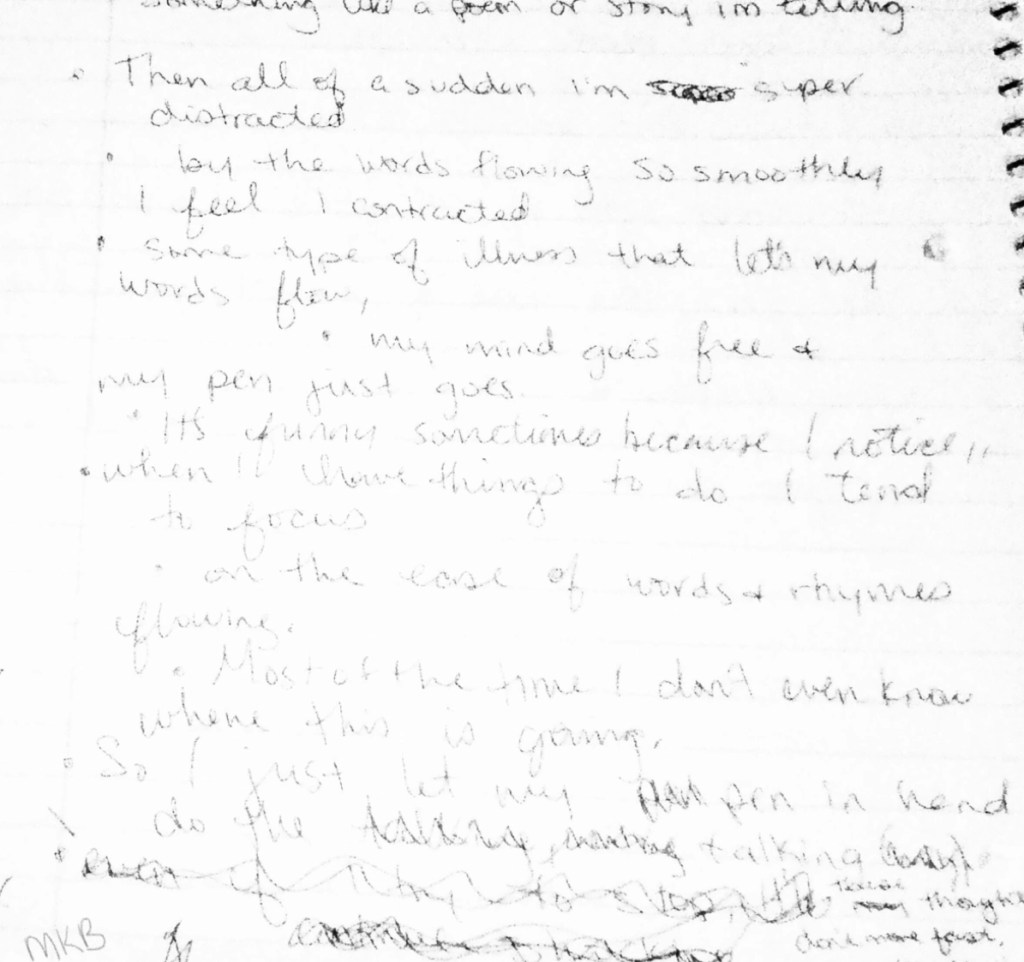 something like a poem or story im telling
• Then all of a sudden i'm super
distracted
• by the words flowing so smoothly
I feel I contracted
• some type of illness that let's my
words flow,
• my mind goes free &
my pen just goes.
• It's funny sometimes because I notice,,
• when I have things to do I tend
to focus
• on the ease of words & rhymes
flowing.
• Most of the time I don't even know
where this is going,
• So I just let my pen in hand
do the talking
• even if I try to stop, the thoughts
MKB